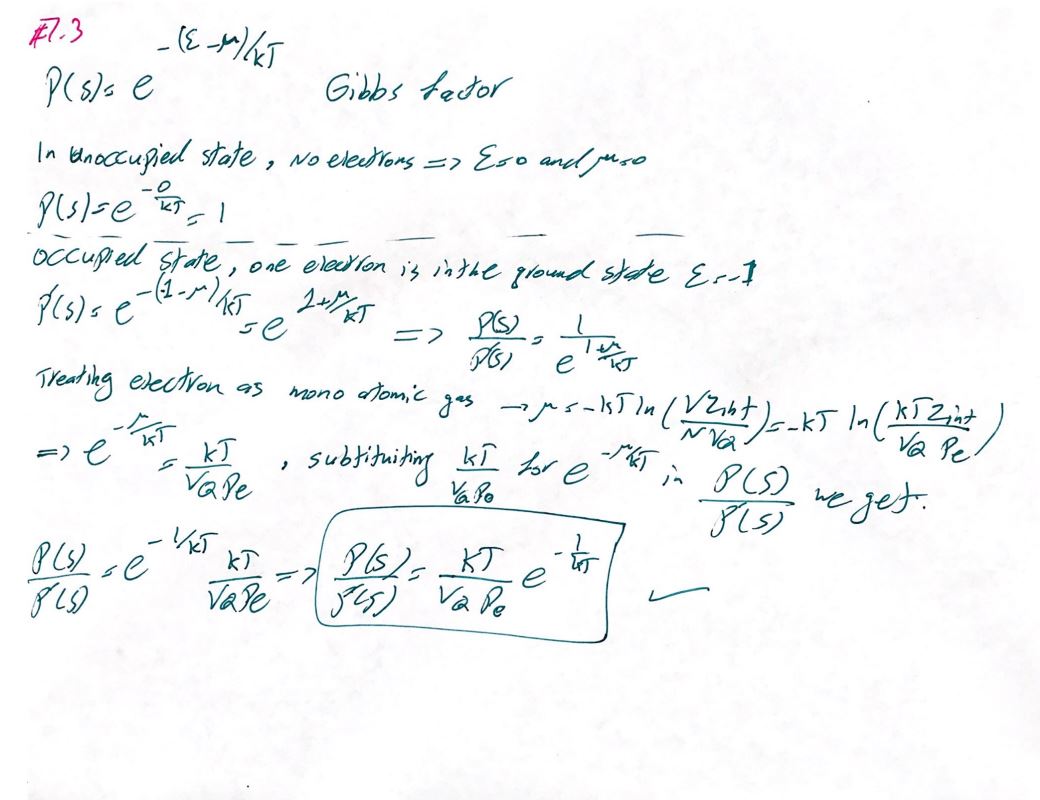 #7.3
P(s) = e^{-(ε-μ)/kT}    Gibbs factor
In Unoccupied state, No electrons => ε=0 and μ=0
P(s) = e^{-0/kT} = 1
occupied state, one electron is in the ground state ε=-I
P'(s) = e^{-(-I-μ)/kT} = e^{I+μ/kT} => P(s)/P'(s) = 1/e^{I+μ/kT}
Treating electron as mono atomic gas → μ = -kT ln(V Zint / N VQ) = -kT ln(kT Zint / VQ Pe)
=> e^{-μ/kT} = kT/VQ Pe , substituiting kT/VQ Pe for e^{-μ/kT} in P(s)/P'(s) we get.
P(s)/P'(s) = e^{-I/kT} kT/VQ Pe => P(s)/P'(s) = kT/VQ Pe e^{-I/kT} ✓